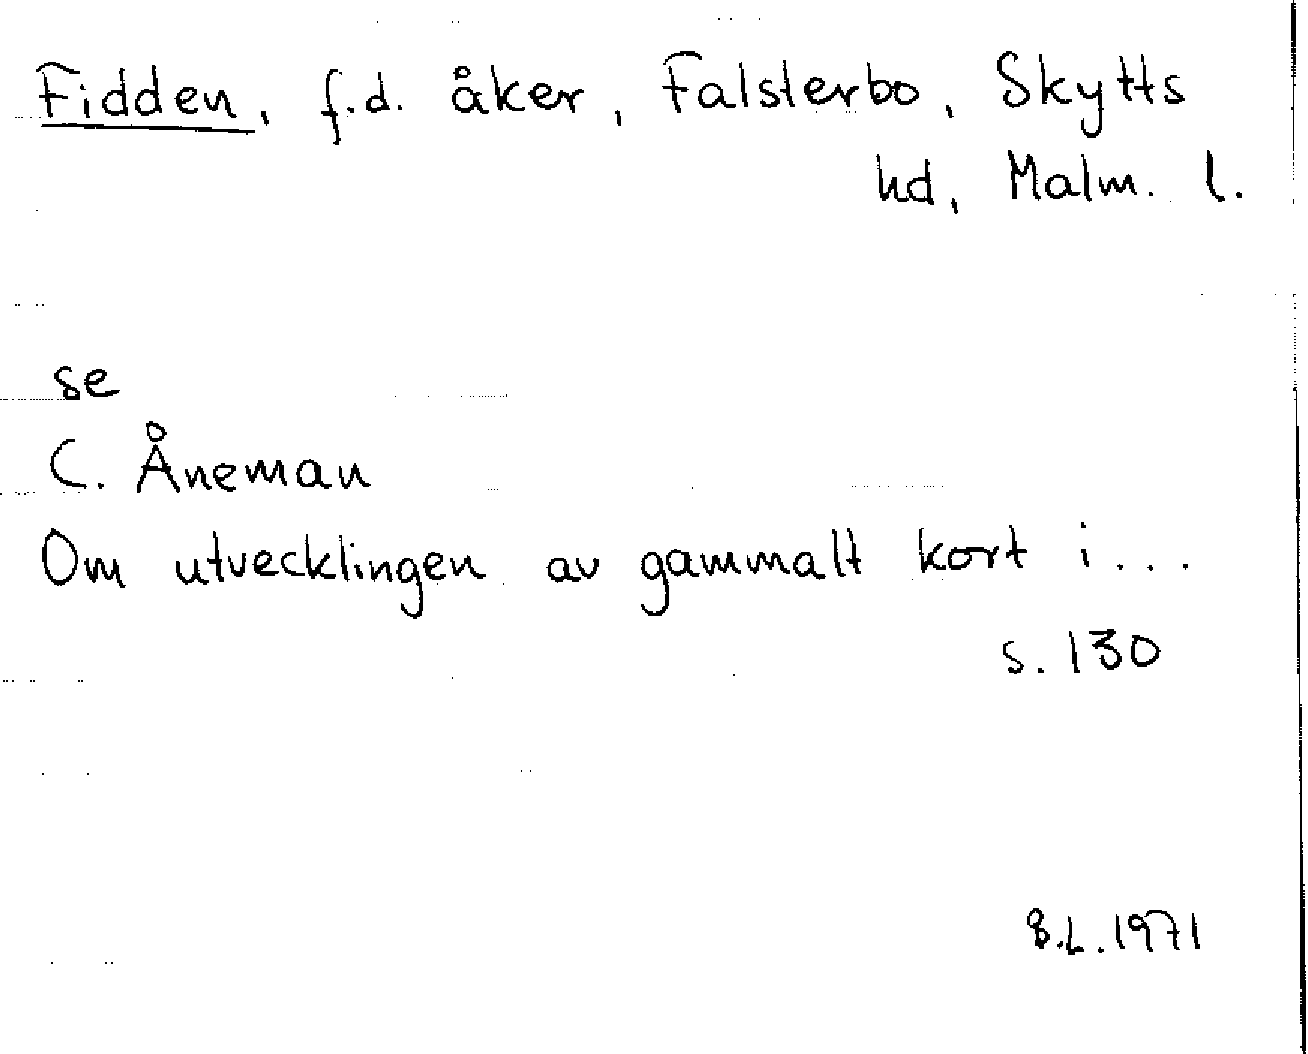 Fidden, f.d. åker, Falsterbo, Skytts
hd, Malm. l.
se
C. Åneman
Om utvecklingen av gammalt kort i...
s. 130
B.L. 1971